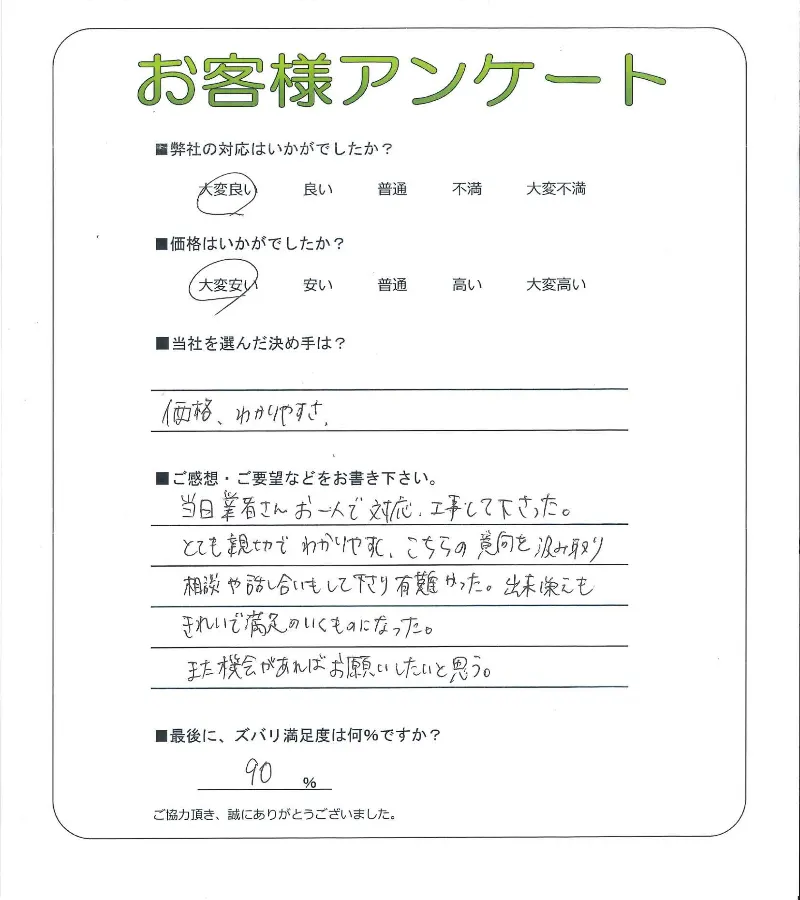 お客様アンケート
■弊社の対応はいかがでしたか？
大変良い 良い 普通 不満 大変不満
■価格はいかがでしたか？
大変安い 安い 普通 高い 大変高い
■当社を選んだ決め手は？
価格、わかりやすさ、
■ご感想・ご要望などをお書き下さい。
当日業者さんお一人で対応、工事して下さった。
とても親切でわかりやすく、こちらの意向を汲み取り
相談や話し合いもして下さり有難かった。出来栄えも
きれいで満足のいくものになった。
また機会があればお願いしたいと思う。
■最後に、ズバリ満足度は何%ですか？
90 %
ご協力頂き、誠にありがとうございました。